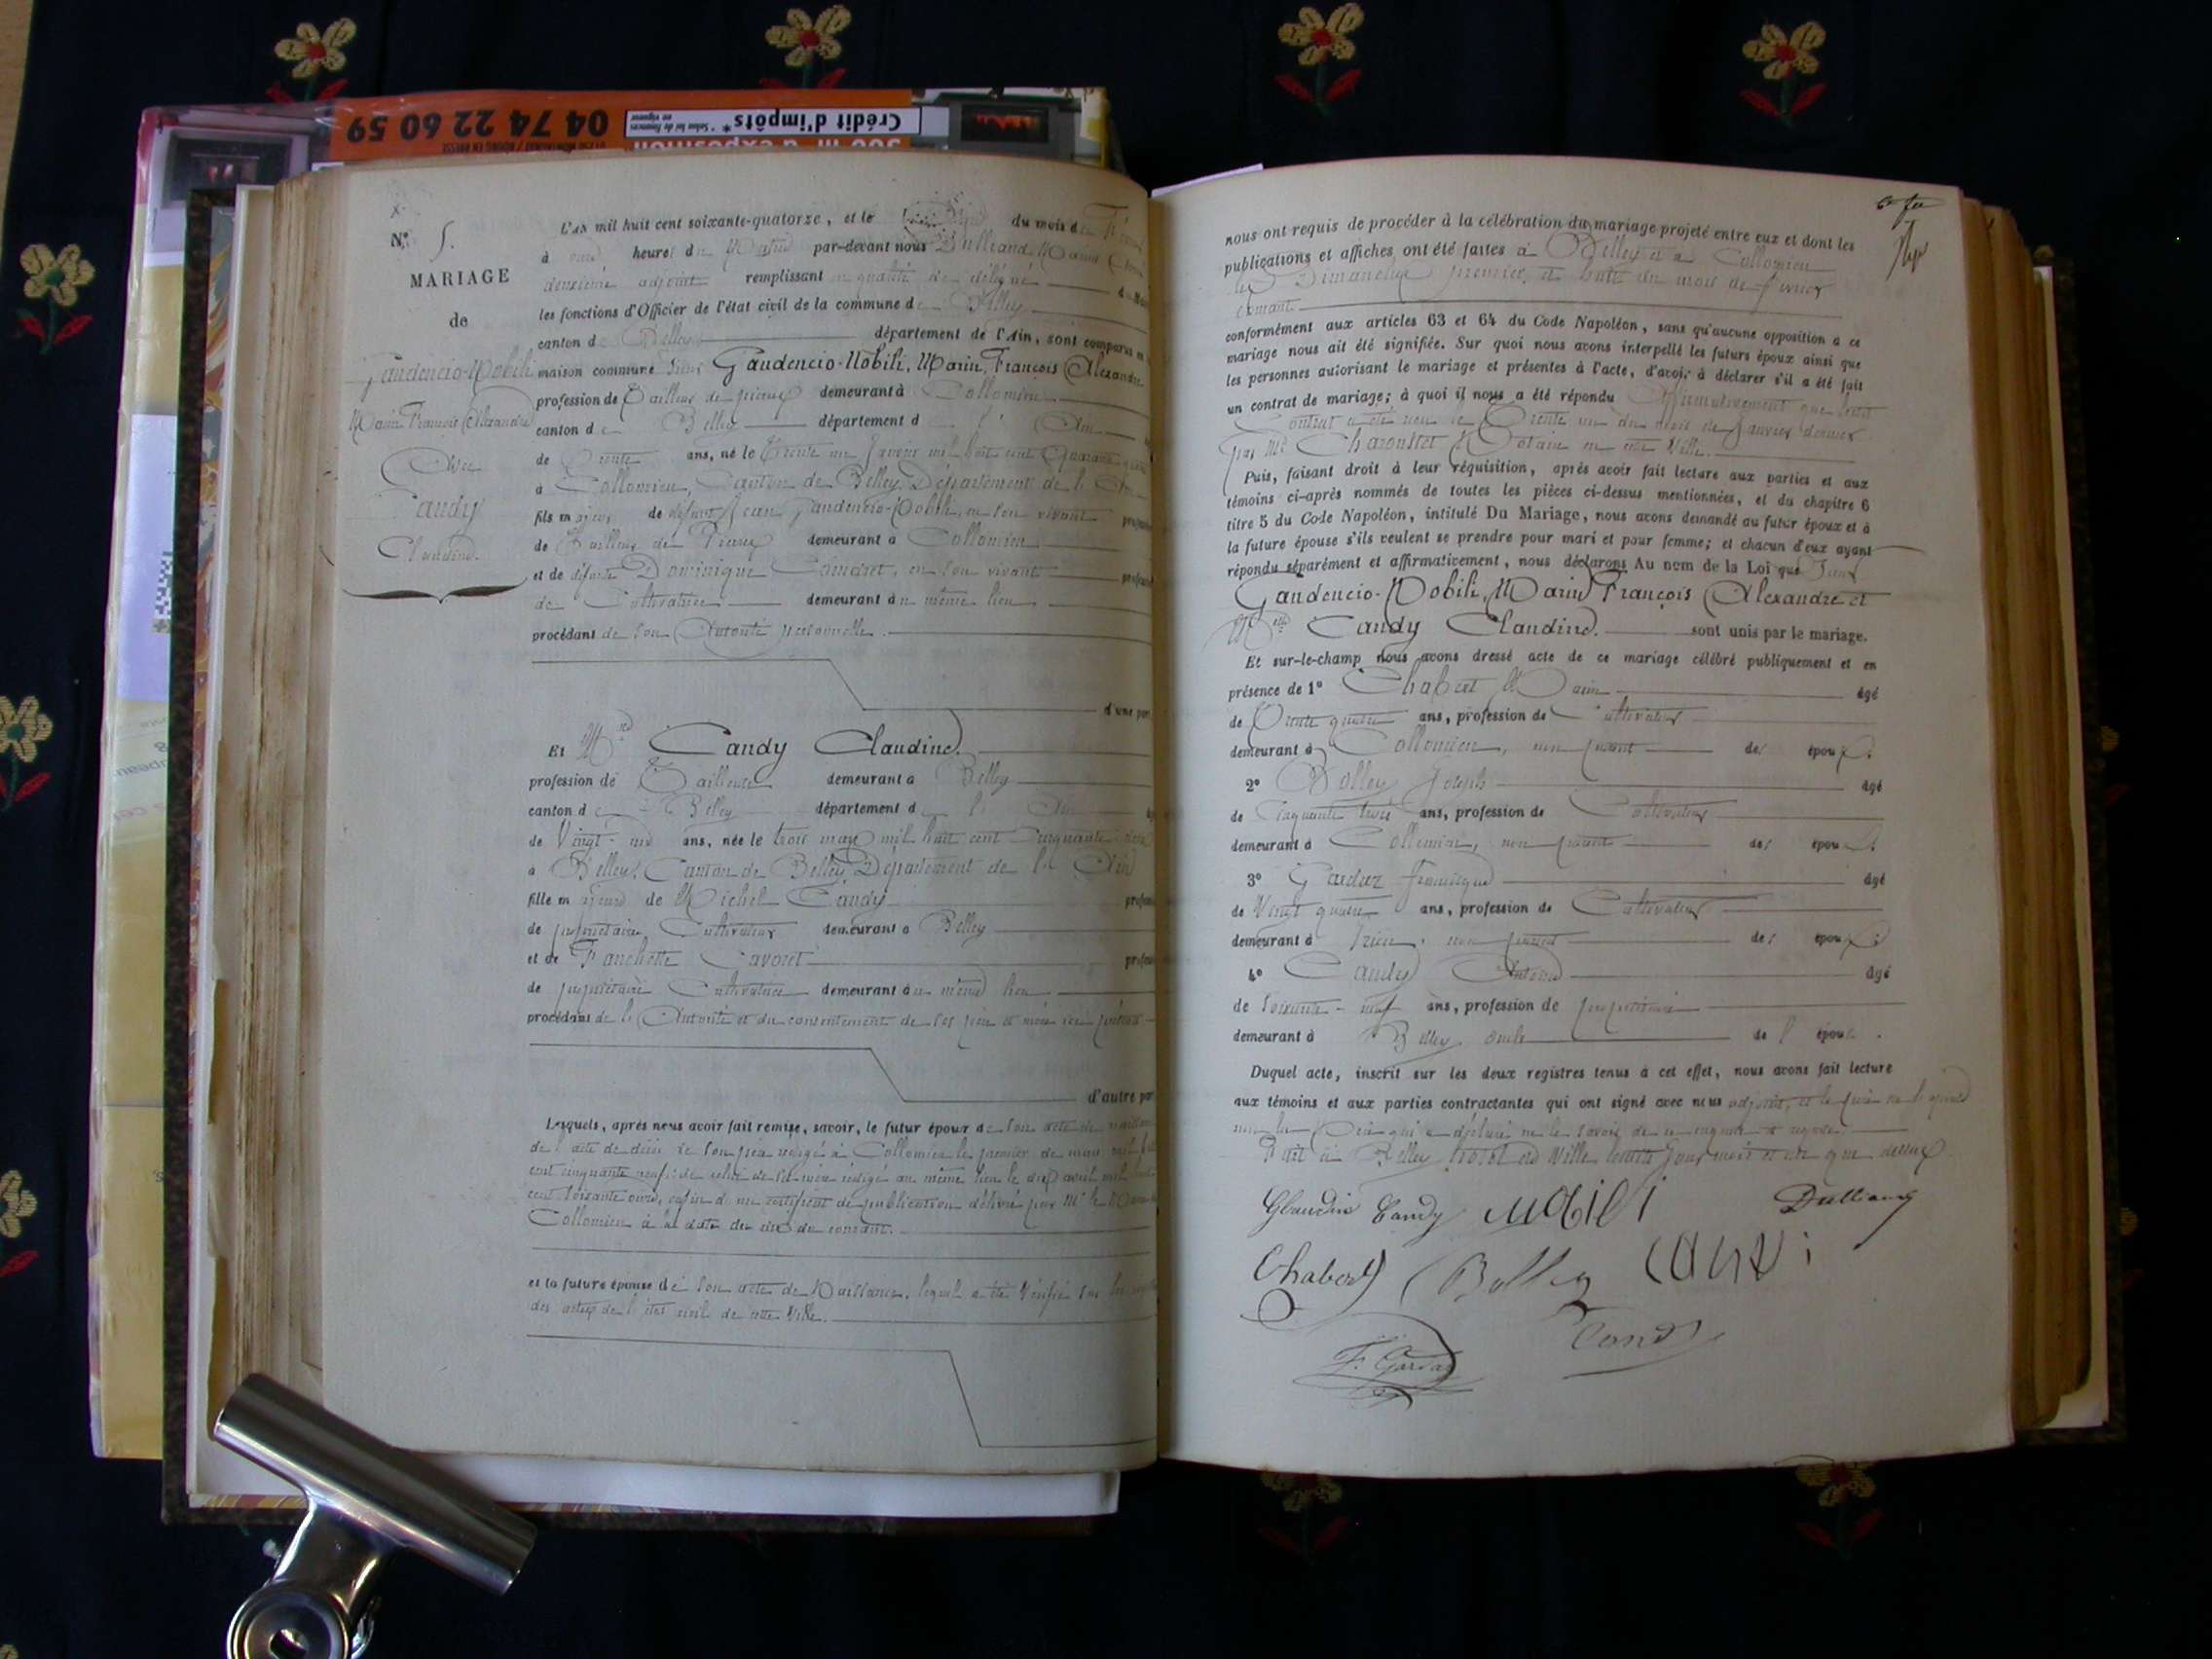 04 74 22 60 59
Crédit d'impôts*
* Selon loi de finances
en vigueur
01250 MONTAGNAT / BOURG EN BRESSE
d'exposition
N° 5.
MARIAGE
de
Gaudencio-Nobili
Marin François Alexandre
Avec
Candy
Claudine.
L'an mil huit cent soixante-quatorze, et le du mois de
à heures du Matin par-devant nous Dulliand
deuxième adjoint remplissant en qualité de délégué
les fonctions d'Officier de l'état civil de la commune de Belley
canton de Belley département de l'Ain, sont comparus en
maison commune Gaudencio-Nobili, Marin, François Alexandre
profession de Tailleur de pierres demeurant à Collomieu
canton de Belley département de l'Ain
de Trente ans, né le Trente un Janvier mil huit cent Quarante
à Collomieu, Canton de Belley, Département de l'Ain
fils majeur de défunt Jean Gaudencio-Nobili, en son vivant
de Tailleur de Pierres demeurant à Collomieu
et de défunte Dominique en son vivant
de Cultivatrice demeurant au même lieu
procédant de son Autorité personnelle.
d'une par
Et Candy Claudine.
profession de Tailleuse demeurant à Belley
canton de Belley département de l'Ain
de Vingt ans, née le trois mars mil huit cent cinquante
à Belley, Canton de Belley, Département de l'Ain
fille majeure de Michel Candy
de propriétaire Cultivateur demeurant à Belley
et de Fanchette Cavoret
de propriétaire Cultivatrice demeurant au même lieu
procédant de l'Autorité et du consentement de ses père et mère ici présents
d'autre par
Lesquels, après nous avoir fait remise, savoir, le futur époux de son acte de naissance
de l'acte de décès de son père rédigé à Collomieu le premier de mars mil huit
cent cinquante neuf; de celui de sa mère rédigé au même lieu le dix avril mil huit
cent soixante onze, enfin d'un certificat de publication délivré par Mr le Maire de
Collomieu à la date du du courant.
et la future épouse de son acte de Naissance, lequel a été Vérifié sur les
des actes de l'état civil de cette Ville.
nous ont requis de procéder à la célébration du mariage projeté entre eux et dont les
publications et affiches ont été faites à Belley et à Collomieu
les Dimanches premier et huit du mois de février
courant
conformément aux articles 63 et 64 du Code Napoléon, sans qu'aucune opposition à ce
mariage nous ait été signifiée. Sur quoi nous avons interpellé les futurs époux ainsi que
les personnes autorisant le mariage et présentes à l'acte, d'avoir à déclarer s'il a été fait
un contrat de mariage; à quoi il nous a été répondu Affirmativement que ledit
Contrat a été reçu le Trente un du mois de Janvier dernier
par Me Notaire en cette Ville.
Puis, faisant droit à leur réquisition, après avoir fait lecture aux parties et aux
témoins ci-après nommés de toutes les pièces ci-dessus mentionnées, et du chapitre 6
titre 5 du Code Napoléon, intitulé Du Mariage, nous avons demandé au futur époux et à
la future épouse s'ils veulent se prendre pour mari et pour femme; et chacun d'eux ayant
répondu séparément et affirmativement, nous déclarons Au nom de la Loi que
Gaudencio-Nobili, Marin François Alexandre et
Mlle Candy Claudine. sont unis par le mariage.
Et sur-le-champ nous avons dressé acte de ce mariage célébré publiquement et en
présence de 1° Chabert Marin âgé
de Trente quatre ans, profession de Cultivateur
demeurant à Collomieu, non parent des époux.
2° Bolley Joseph âgé
de Cinquante trois ans, profession de Cultivateur
demeurant à Collomieu, non parent des époux.
3° Gardaz Francisque âgé
de Vingt quatre ans, profession de Cultivateur
demeurant à non parent des époux.
4° Candy Antoine âgé
de Soixante-neuf ans, profession de propriétaire
demeurant à Belley oncle de l'épouse.
Duquel acte, inscrit sur les deux registres tenus à cet effet, nous avons fait lecture
aux témoins et aux parties contractantes qui ont signé avec nous adjoint, et le père de l'épouse
non la mère qui a déclaré ne le savoir de ce enquise et requise.
Fait à Belley, hôtel de Ville lesdits jour mois et an que dessus
Glaudine Candy Nobili Dulliand
Chabert Bolley Candy
F. Gardaz Candy